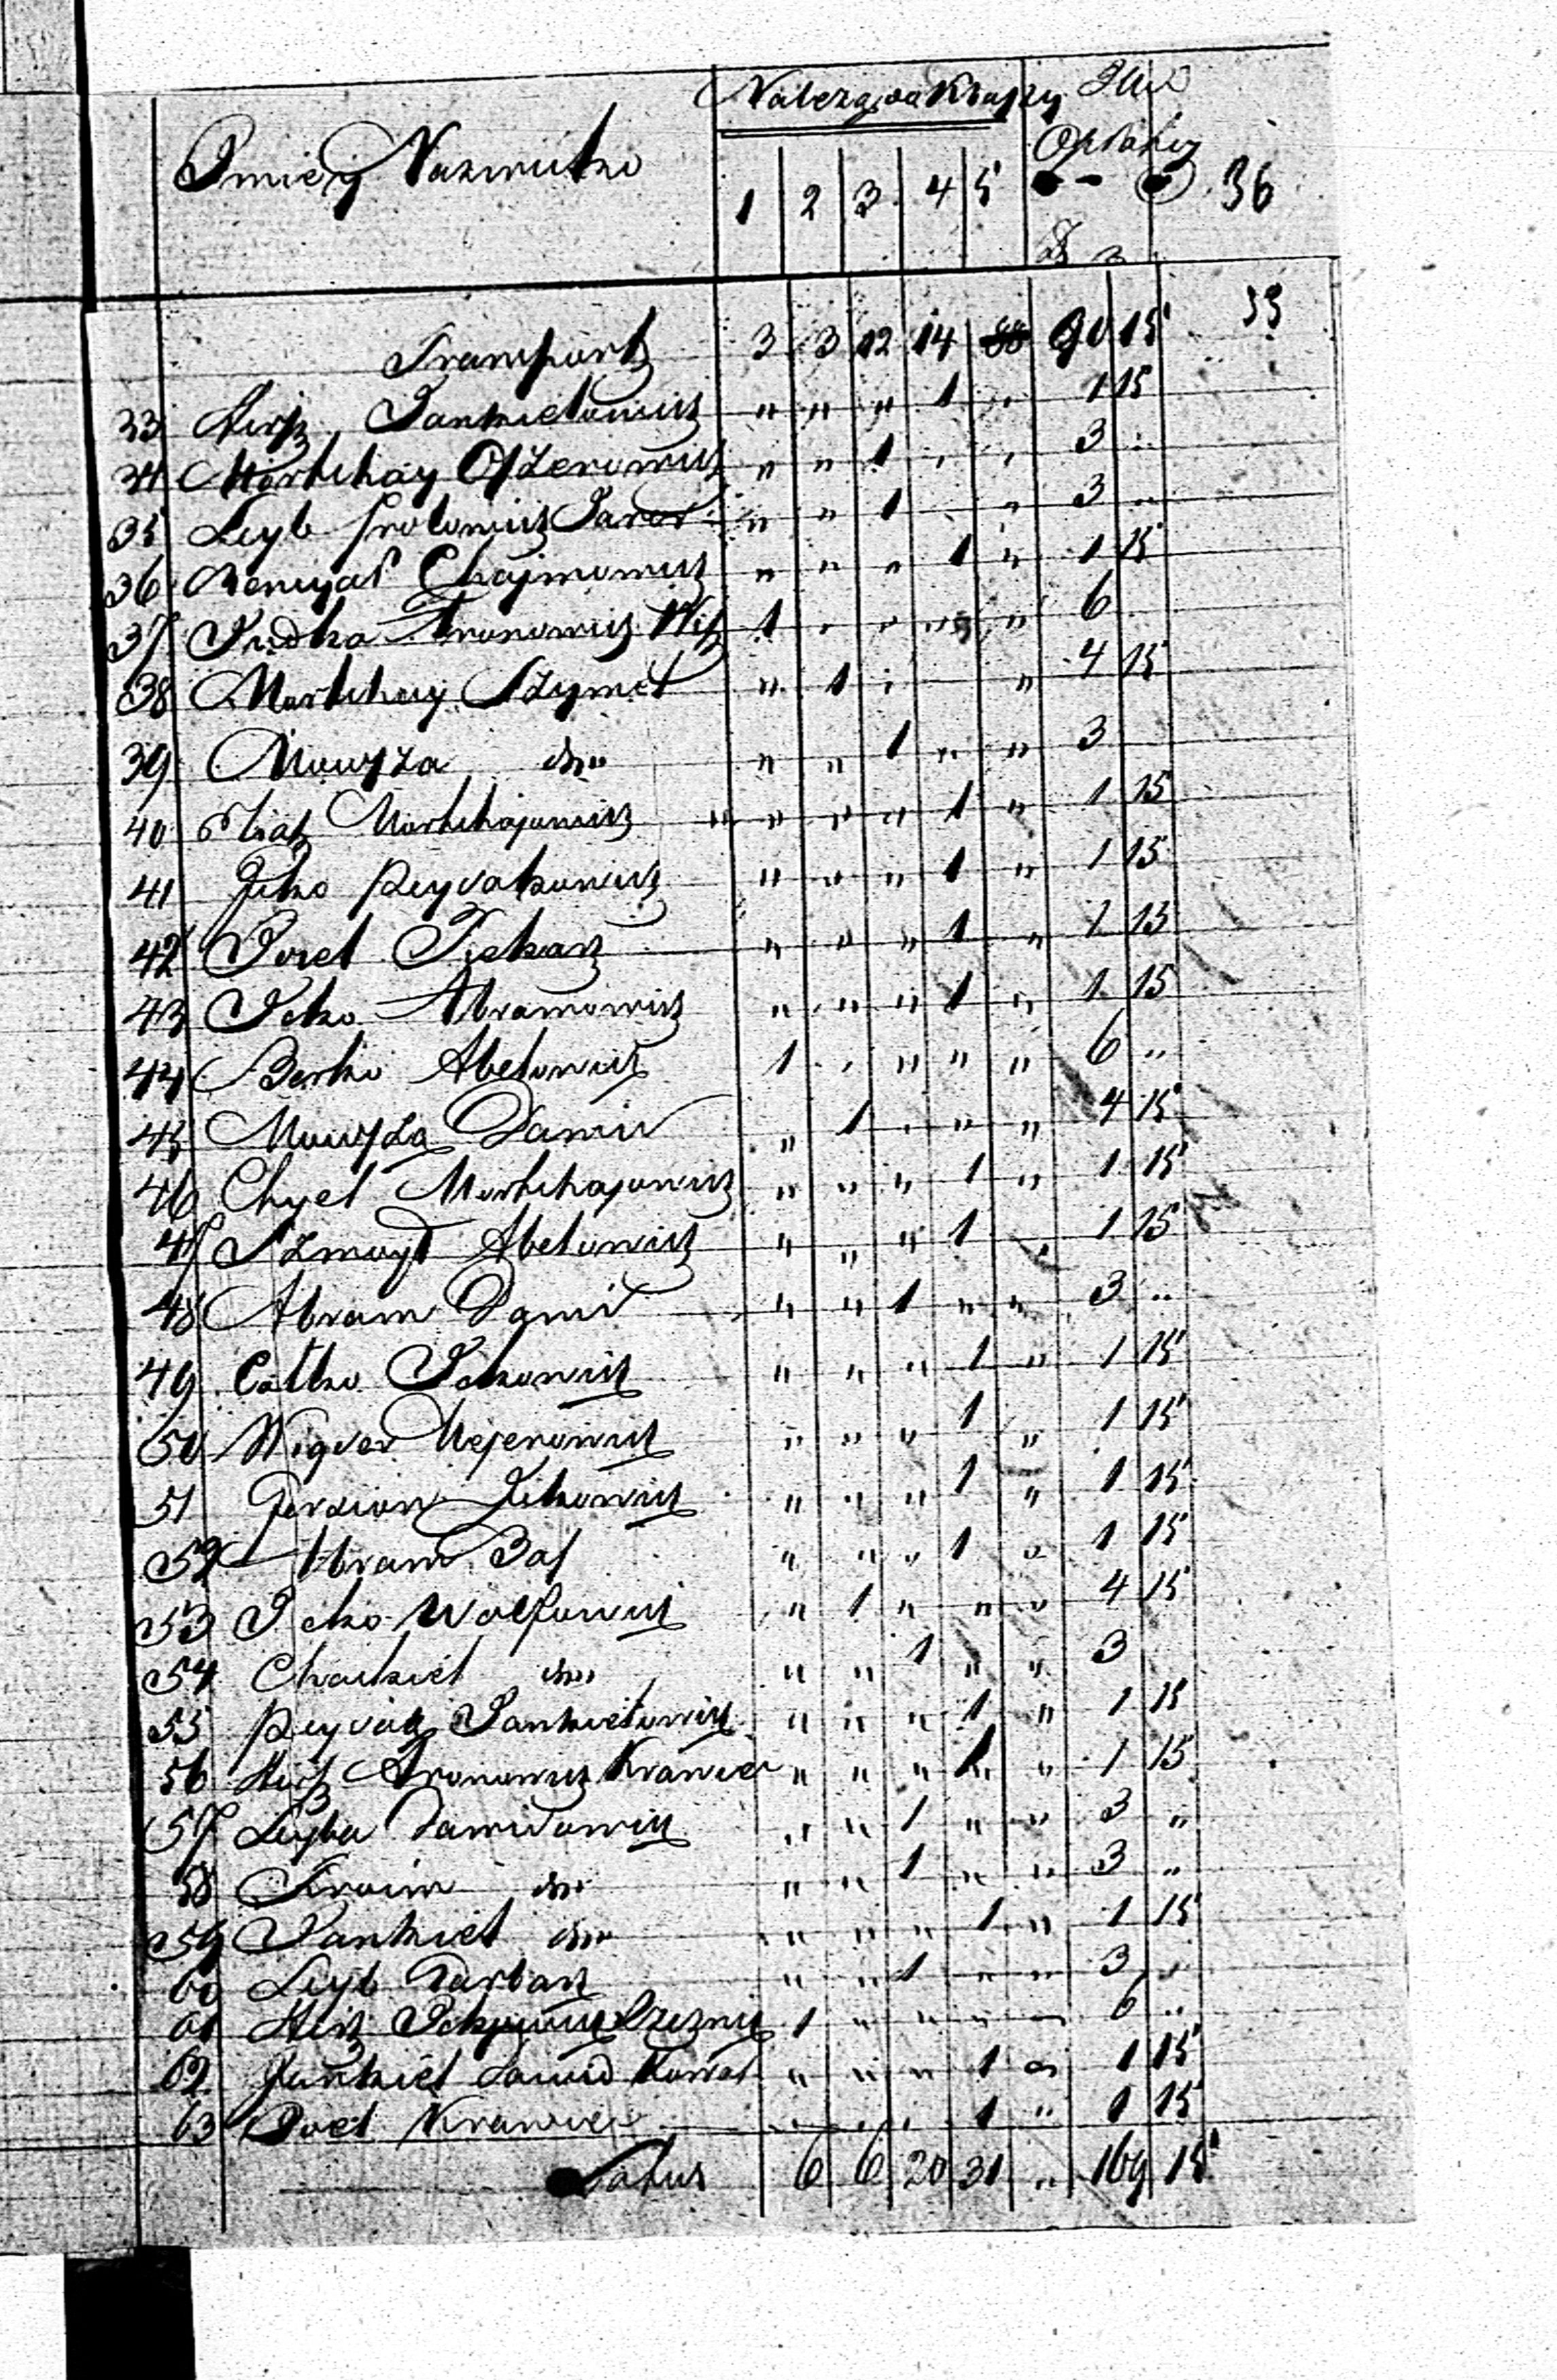 Imie y Nazwisko Należą do Klassy Ilość Opłaty 36
1 2 3 4 5
Transport 3 3 12 14 90 15 33
33 Hirsz Jankielowicz " " " 1 " 1 15
34 Mortchay Oszerowicz " " 1 " " 3 "
35 Leyb " " 1 " " 3 "
36 Chajmowicz " " " 1 " 1 15
37 Judka Aronowicz 1 " " " " 6
38 Mortchay Szymel " 1 " " 4 15
39 Mowsza dto " " 1 " " 3
40 Eliasz Mortchajowicz " " " 1 " 1 15
41 Icko " " " 1 " 1 15
42 Josel Piekarz " " " 1 " 1 15
43 Icko Abramowicz " " " 1 " 1 15
44 Berko Abelowicz 1 " " " " 6 "
45 Mowsza Dawid " 1 " " " 4 15
46 Chyel Mortchajowicz " " " 1 " 1 15
47 Szmoyl Abelowicz " " " 1 " 1 15
48 Abram Dawid " " 1 " " 3 "
49 Calko Ickowicz " " " 1 " 1 15
50 Wigder Mejerowicz " " " 1 " 1 15
51 Gerszon Ickowicz " " " 1 " 1 15
52 Abram " " " 1 " 1 15
53 Icko Wolfowicz " 1 " " " 4 15
54 Chackiel dto " " 1 " " 3
55 Jankielowicz " " " 1 " 1 15
56 Hirsz Aronowicz Krawiec " " " 1 " 1 15
57 Leyba Dawidowicz " " 1 " " 3 "
58 Froim dto " " 1 " " 3 "
59 Jankiel dto " " " 1 " 1 15
60 Leyb Garbarz " " 1 " " 3 "
61 Hirsz 1 " " " " 6 "
62 Jankiel Dawid Kowal " " " 1 " 1 15
63 Josel Krawiec " " " 1 " 1 15
Latus 6 6 20 31 " 169 15